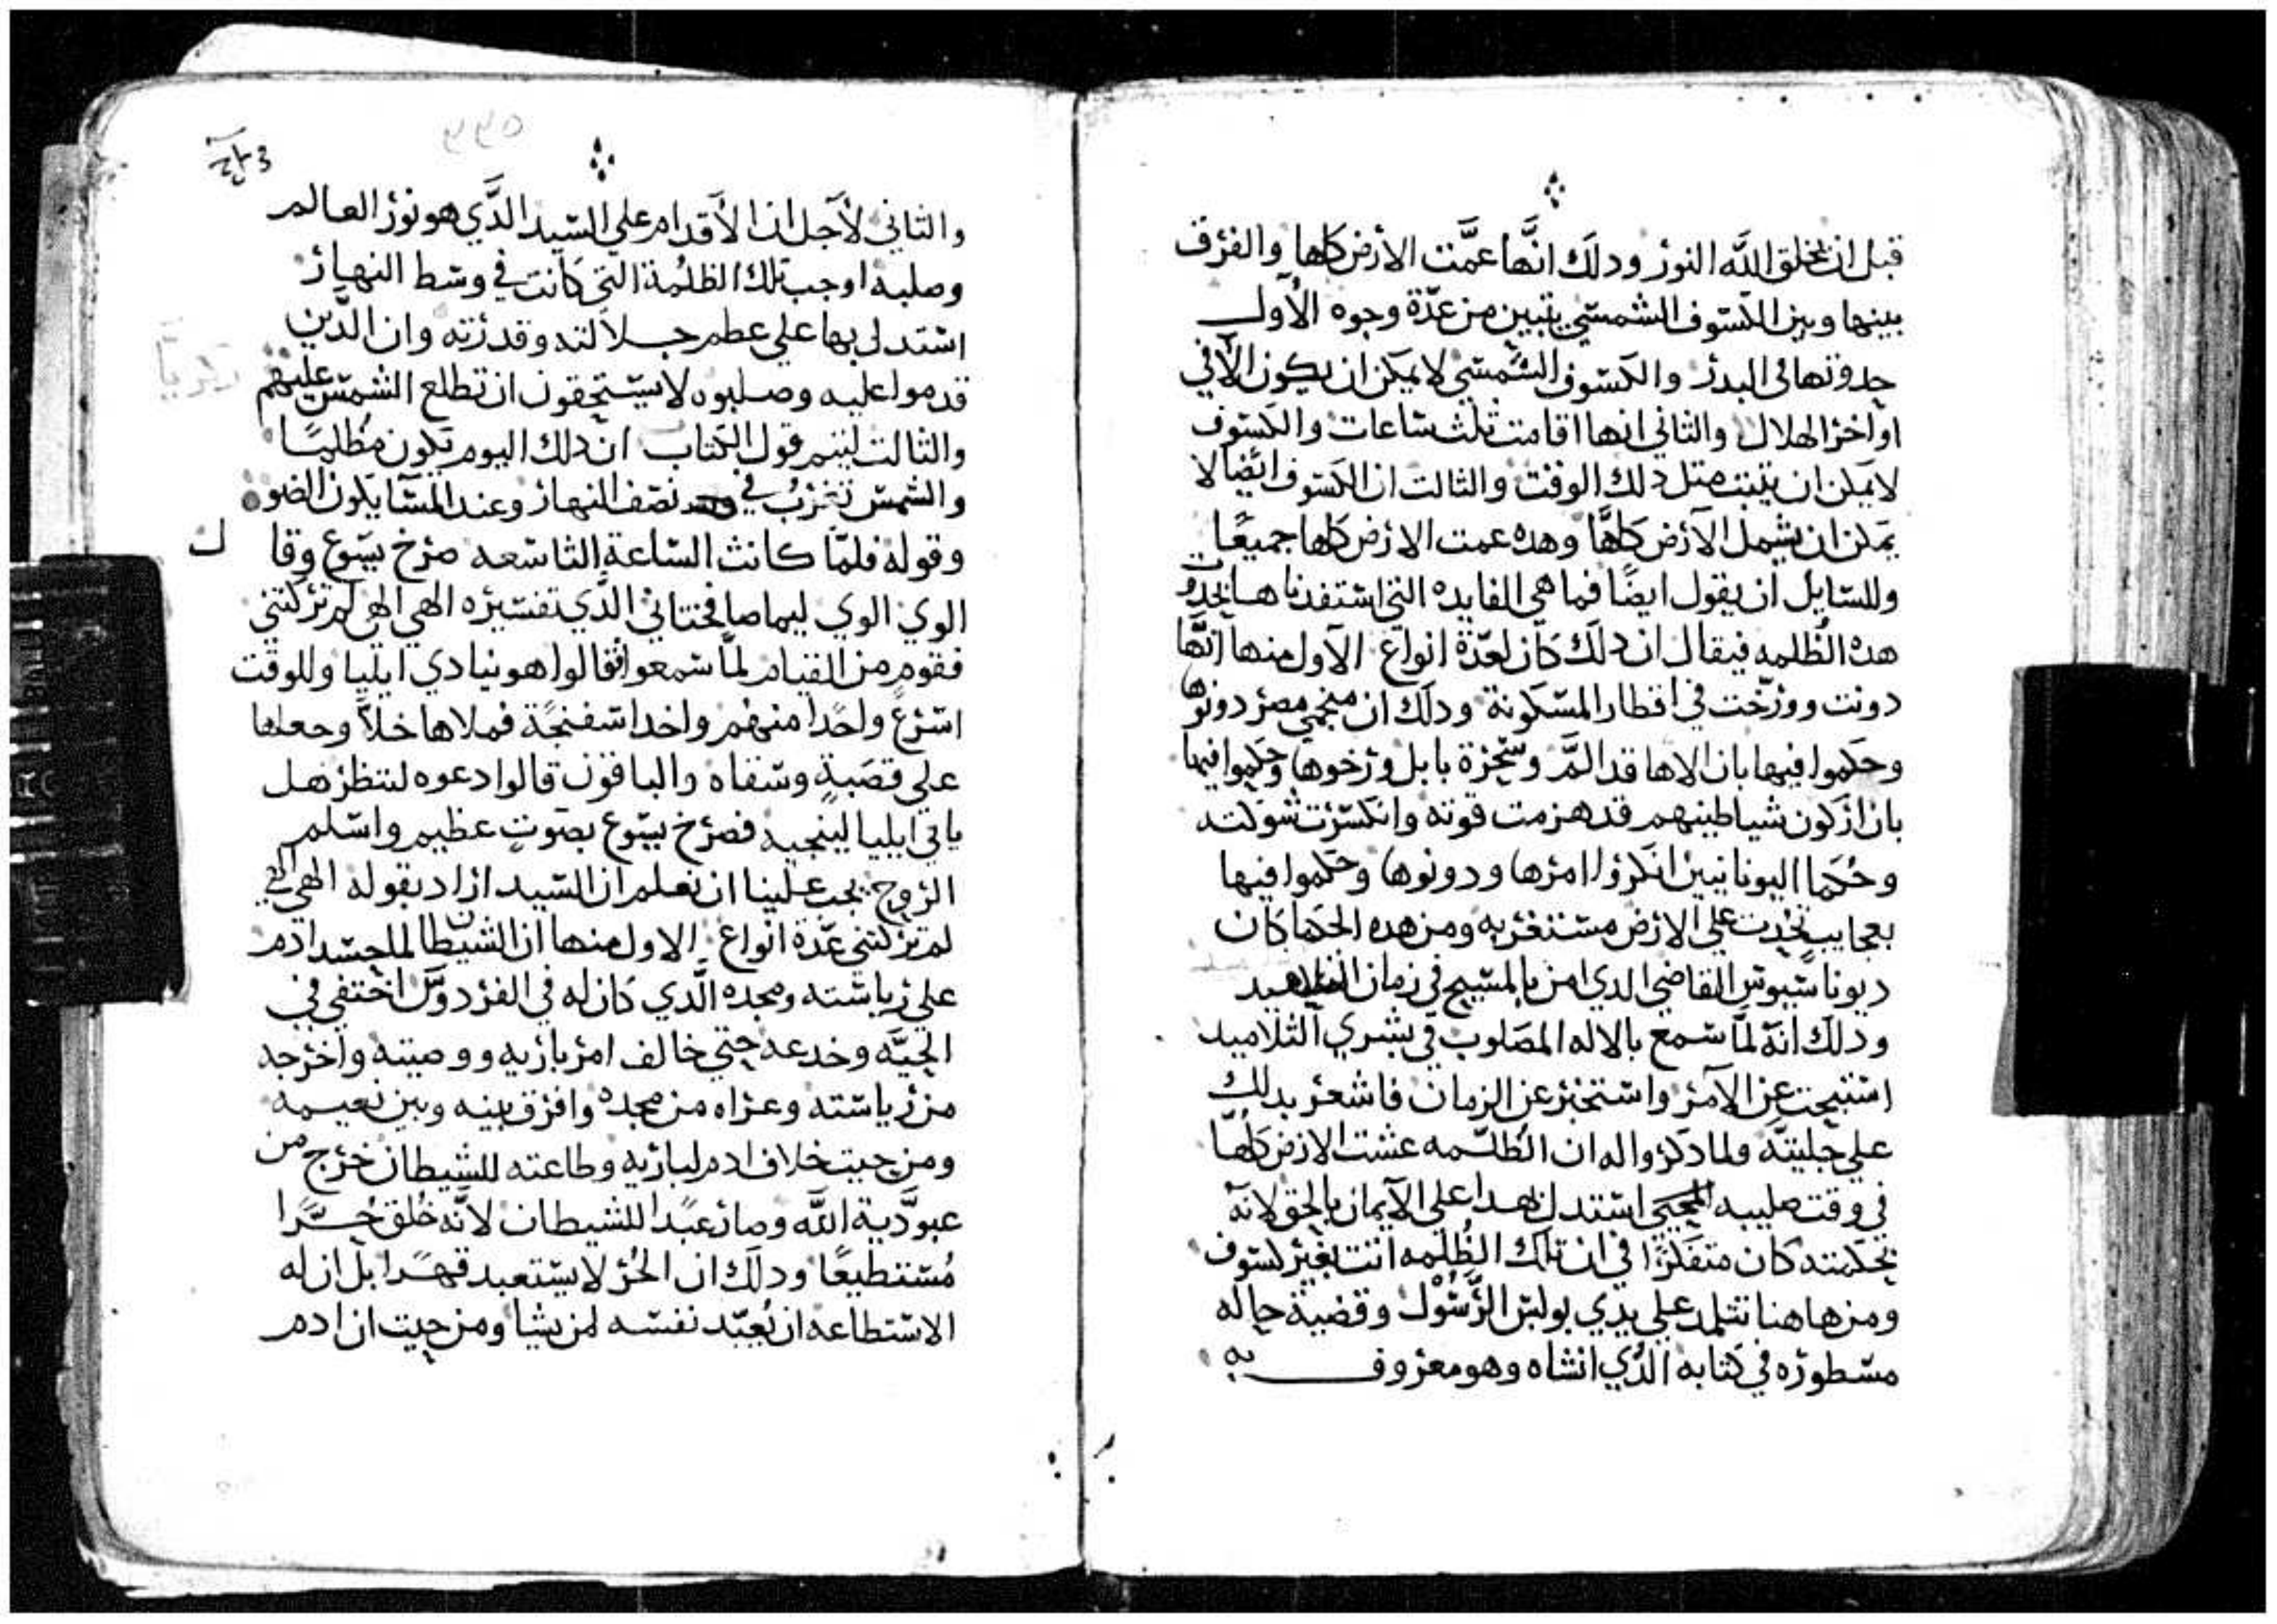 قبل ان يخلق الله النور ودلك انَّها عمَّت الأرض كلها والفرق
بينها وبين الكسوف الشمسي يتبين من عدّة وجوه الأول
حدوتها في البدر والكسوف الشمسي لا يمكن ان يكون الا في
اواخر الهلال والثاني انها اقامت تلث ساعات والكسوف
لا يمكن ان يتبت متل دلك الوقت والثالت ان الكسوف ايضا لا
يمكن ان يشمل الارض كلهَّا وهده عمت الارض كلها جميعًا
وللسايل ان يقول ايضًا فما هي الفايده التي استفدناها بحدوت
هده الظلمه فيقال ان دلك كان لعدّة انواع الاول منها انَّها
دونت وورّخت في اقطار المسكونة ودلك ان منجمي مصر دونوها
وحكموا فيها بان الاها قد المَّ وسحرة بابل ورخوها وحكموا فيها
بان اركون شياطينهم قد هزمت قوته وانكسرت شوكته
وحُكما اليونانيين انكروا امرها ودونوها وحكموا فيها
بعجايب تحدت على الارض مستغربه ومن هده الحكما كان
ديوناسيوس القاضي الدي امن بالمسيح في زمان التلاميد
ودلك انه لمّا سمع بالاله المصلوب في بشري التلاميد
استبحت عن الامر واستخبر عن الزمان فاشعر بدلك
علي جليته ولما دكروا له ان الظلمه غشت الارض كلها
في وقت صليبه المحيي استدل بهدا على الايمان بالحق لانه
بحكمته كان متفكرًا في ان تلك الظُلمه اتت بغير كسوف
ومن هاهنا تتلمد علي يدي بولس الرَّسول وقضية حاله
مسطوره في كتابه الدي انشاه وهو معروف به
٣٣٥
والتاني لاجل ان الأقدام علي السيد الدَّي هو نور العالم
وصلبه اوجب تلك الظلمة التي كانت في وسط النهار
استدل بها علي عظم جلالته وقدرته وان الدَّين
قدموا عليه وصلبوه لا يستحقون ان تطلع الشمس عليهم
والتالت ليتم قول الكتاب ان دلك اليوم يكون مظلمًا
والشمس تغرب في نصف النهار وعند المسا يكون الضو
وقوله فلمّا كانت الساعة التاسعه صرخ يسوع وقال
الوي الوي ليما صافختاني الدّي تفسيره الهي الهي لم تركتني
فقوم من القيام لمّا سمعوا قالوا هو ينادي ايليا وللوقت
اسرع واحدًا منهم واخد اسفنجة فملاها خلاً وجعلها
علي قصبةٍ وسقاه والباقون قالوا دعوه لننظر هل
ياتي ايليا لينجيه فصرخ يسوع بصوتٍ عظيم واسلم
الروح يجب علينا ان نعلم ان السيد اراد بقوله الهي الهي
لم تركتني عدّة انواع الاول منها ان الشيطان لما حسد ادم
علي رياسته ومجده الَّدي كان له في الفردوس اختفي في
الحيَّه وخدعه حتي خالف امر باريه ووصيته واخرجه
من رياسته وعراه من مجده وافرق بينه وبين نعيمه
ومن حيت خلاف ادم لباريه وطاعته للشيطان خرج من
عبودَّية اللَّه وصار عبدًا للشيطان لانَّه خُلق حُرًّا
مُستطيعًا ودلك ان الحُر لا يستعبد قهرًا بل ان له
الاستطاعه ان يُعبّد نفسه لمن يشا ومن حيت ان ادم